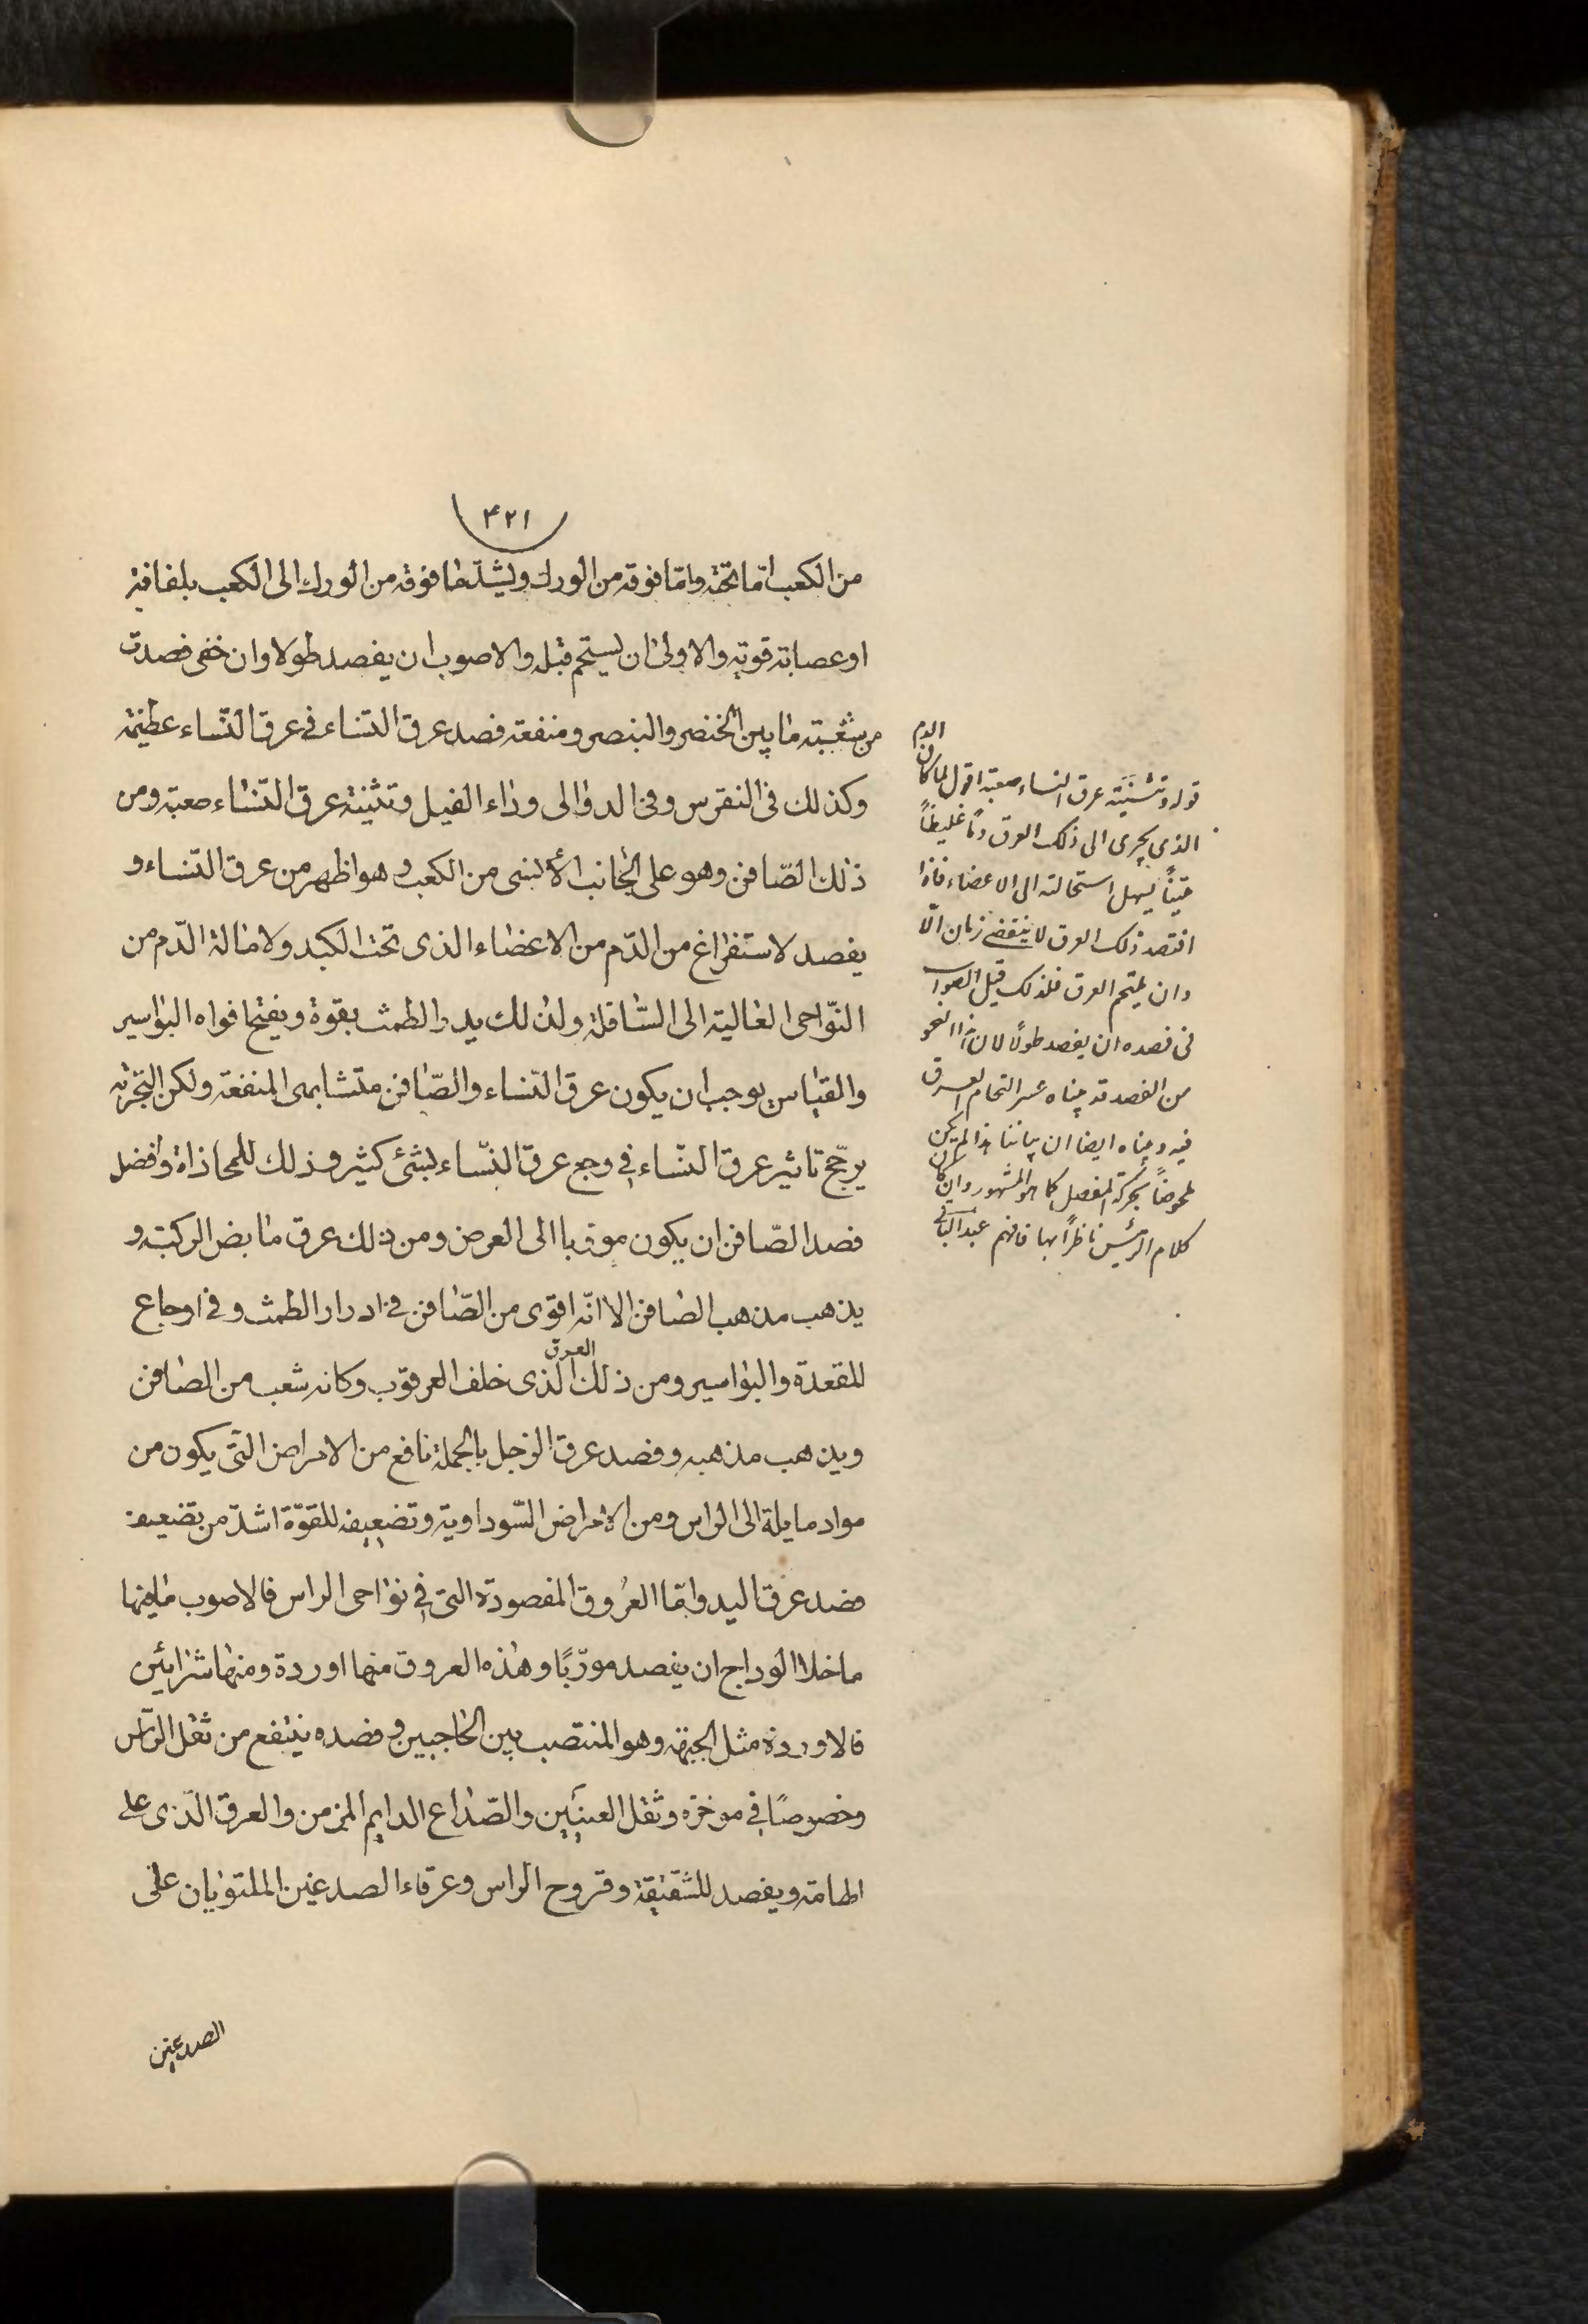 ٤٢١
من الكعب اما تحته واما فوقه من الورك ويشد ما فوقه من الورك الى الكعب بلفافة
او عصابة قوية والاولى ان يستحم قبله والاصوب ان يفصد طولا وان خفى فصدت
من شعبته ما بين الخنصر والبنصر ومنفعة فصد عرق النساء فى عرق النساء عظيمة
وكذلك فى النقرس وفى الدوالى وداء الفيل وتثنية عرق النساء صعبة ومن
ذلك الصّافن وهو على الجانب الأنسى من الكعب وهو اظهر من عرق النساء و
يفصد لاستفراغ من الدّم من الاعضاء الذى تحت الكبد ولامالة الدّم من
النّواحى العالية الى السّافلة ولذلك يدر الطمث بقوة ويفتح افواه البواسير
والقياس يوجب ان يكون عرق النساء والصّافن متشابهى المنفعة ولكن التجربة
يرجّح تاثير عرق النسّاء فى وجع عرق النسّاء بشئ كثير وذلك للمحاذاة وافضل
فصد الصّافن ان يكون موربا الى العرض ومن ذلك عرق مابض الركبة و
يذهب مذهب الصافن الا انّه اقوى من الصّافن فى ادرار الطمث وفى اوجاع
المقعدة والبواسير ومن ذلك العرق الذى خلف العرقوب وكانه شعب من الصافن
ويذهب مذهبه وفصد عرق الرجل بالجملة نافع من الامراض التى يكون من
مواد مايلة الى الراس ومن الامراض السّوداوية وتضعيفه للقوّة اشدّ من تضعيف
فصد عرق اليد وامّا العُروق المفصودة التى فى نواحى الراس فالاصوب مافيها
ماخلا الوداج ان يفصد مورّبًا وهذه العروق منها اوردة ومنها شرايين
فالاوردة مثل الجبهة وهو المنتصب بين الحاجبين وفصده ينفع من ثقل الرّاس
وخصوصًا فى موخره وثقل العينين والصّداع الدايم المزمن والعرق الّذى على
الهامة ويفصد للشقيقة وقروح الراس وعرقاء الصدغين الملتويان على
الصدغين
قوله وتثنية عرق النساء صعبة اقول لما كان الدم
الذى يجرى الى ذلك العرق دمًا غليظًا
يسهل استحالته الى الاعضاء فاذا
افتصد ذلك العرق لا ينقضى زمان الّا
وان يلتحم العرق فلذلك قيل الصواب
فى فصده ان يفصد طولًا لان هذا النحو
من الفصد قد بيناه عسر التحام العرق
فيه وبيناه ايضا ان بياننا هذا لم يكن
ملحوظًا بحركة المفصل كما هو المشهور وان كان
كلام الرئيس ناظرًا بها فافهم عبد الباقى